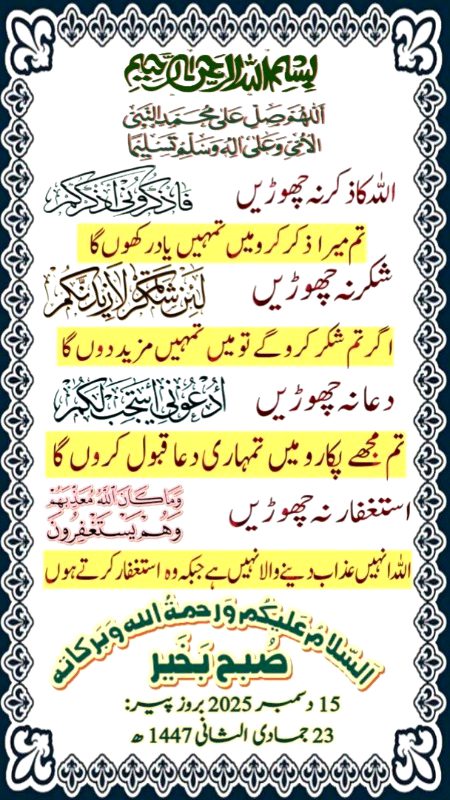 بسم الله الرحمن الرحيم
اَللّٰهُمَّ صَلِّ عَلٰى مُحَمَّدِ النَّبِيِّ
الْاُمِّيِّ وَعَلٰى اٰلِهٖ وَسَلِّمْ تَسْلِيْمًا
اللہ کا ذکر نہ چھوڑیں فَاذْكُرُونِي أَذْكُرْكُمْ
تم میرا ذکر کرو میں تمہیں یاد رکھوں گا
شکر نہ چھوڑیں لَئِن شَكَرْتُمْ لَأَزِيدَنَّكُمْ
اگر تم شکر کرو گے تو میں تمہیں مزید دوں گا
دعا نہ چھوڑیں ادْعُونِي أَسْتَجِبْ لَكُمْ
تم مجھے پکارو میں تمہاری دعا قبول کروں گا
استغفار نہ چھوڑیں وَمَا كَانَ اللَّهُ مُعَذِّبَهُمْ
وَهُمْ يَسْتَغْفِرُونَ
اللہ انہیں عذاب دینے والا نہیں ہے جبکہ وہ استغفار کرتے ہوں
السّلامُ علیکم ورحمۃُ اللہ وبرکاتہ
صُبح بَخَیر
15 دسمبر 2025 بروز پیر:
23 جمادی الثانی 1447 ھ